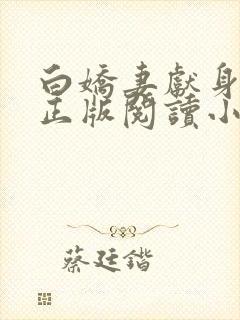 白嬌妻獻身
正版閱讀小
蔡廷鍇